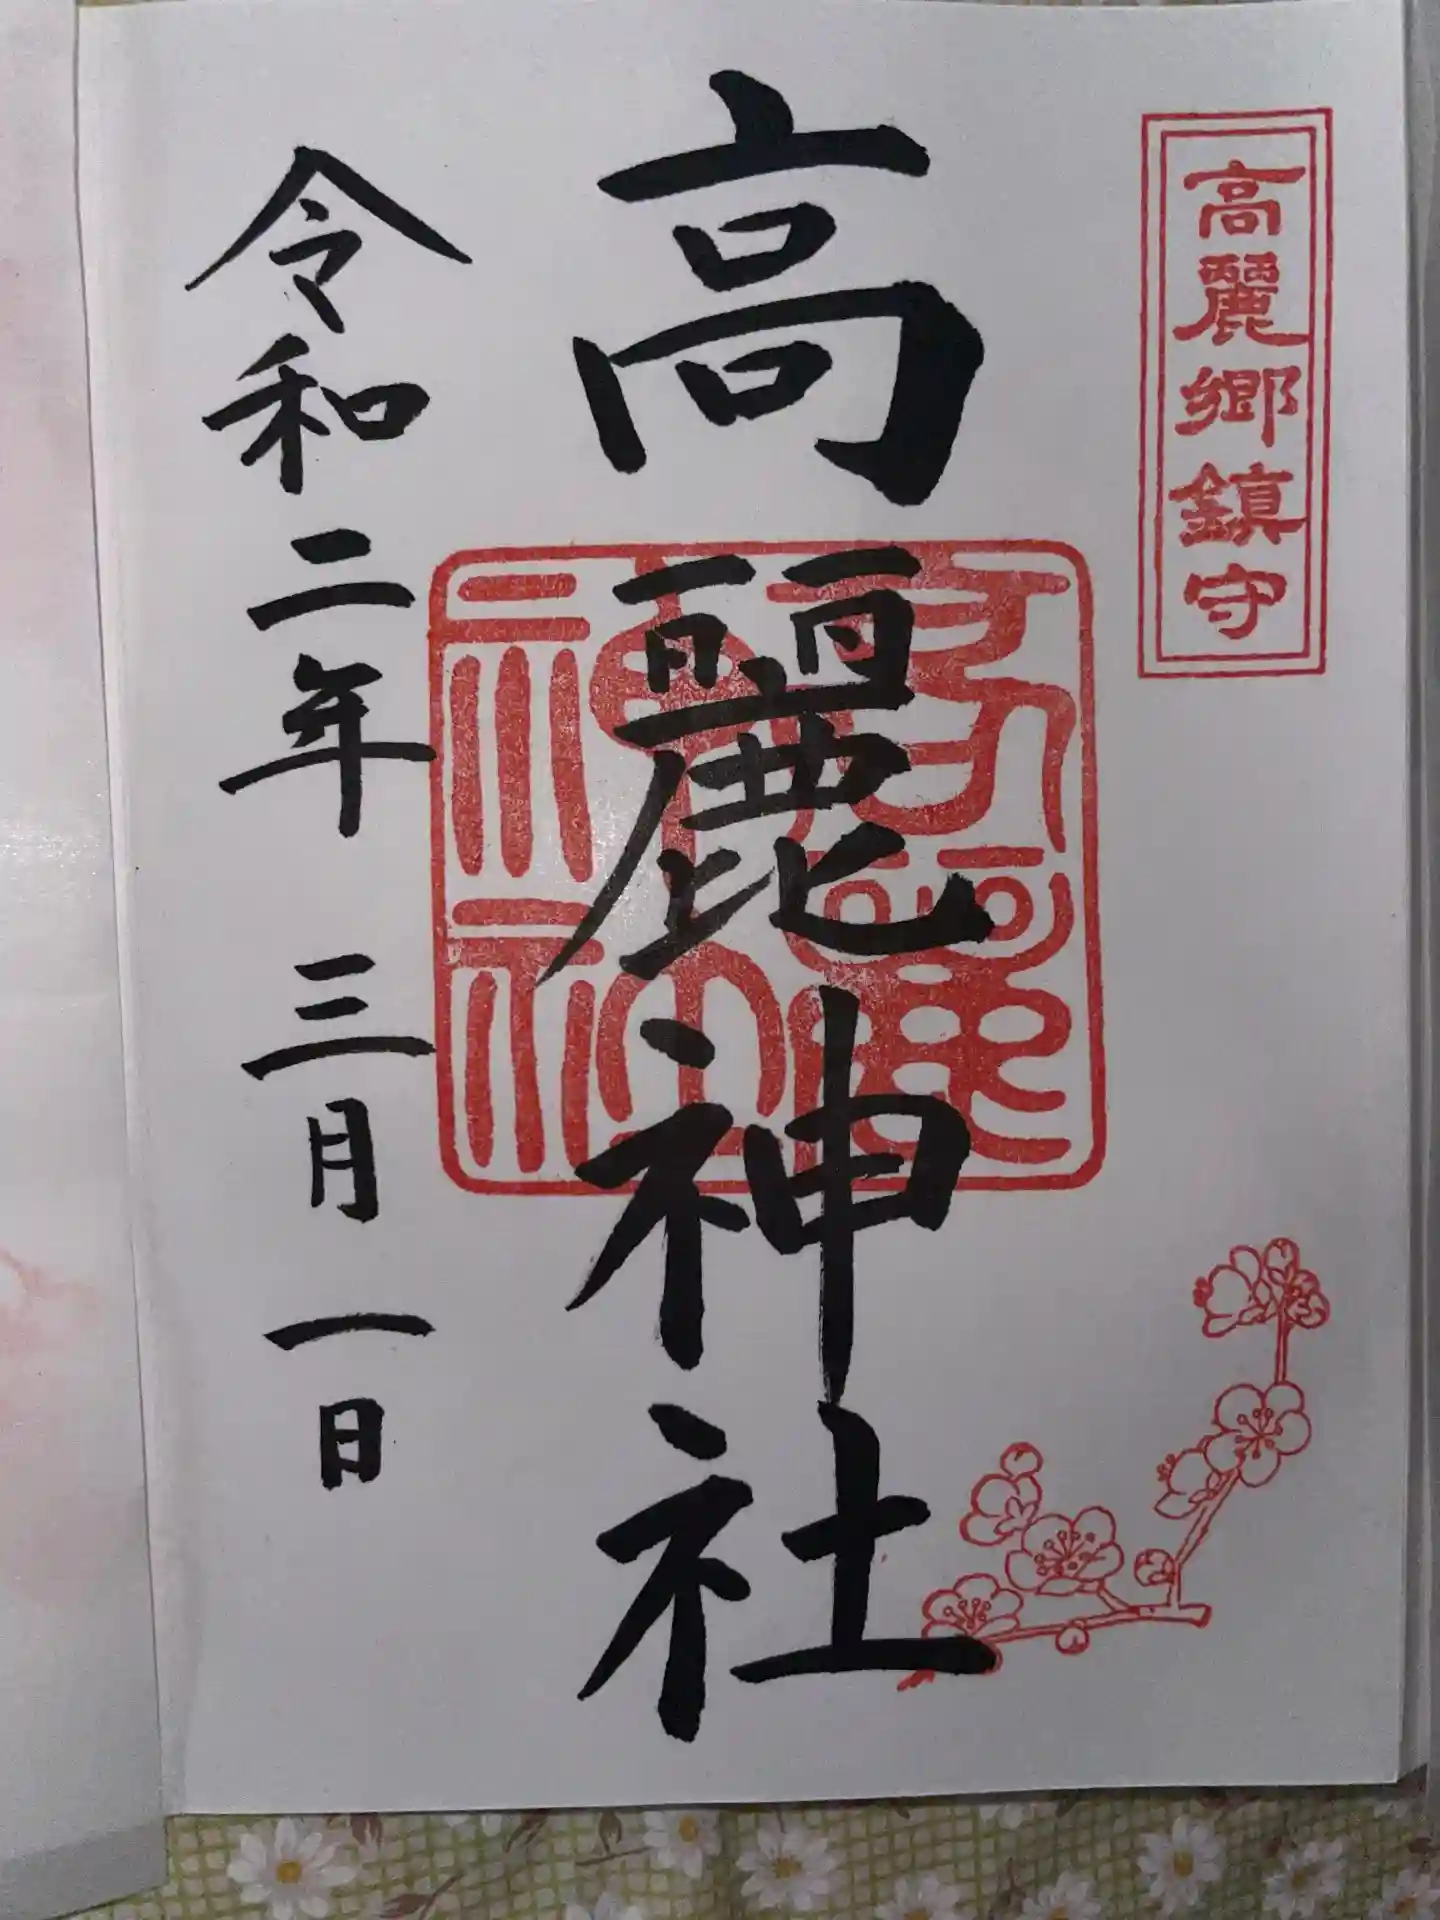 高麗郷鎮守
高麗神社
令和二年三月一日